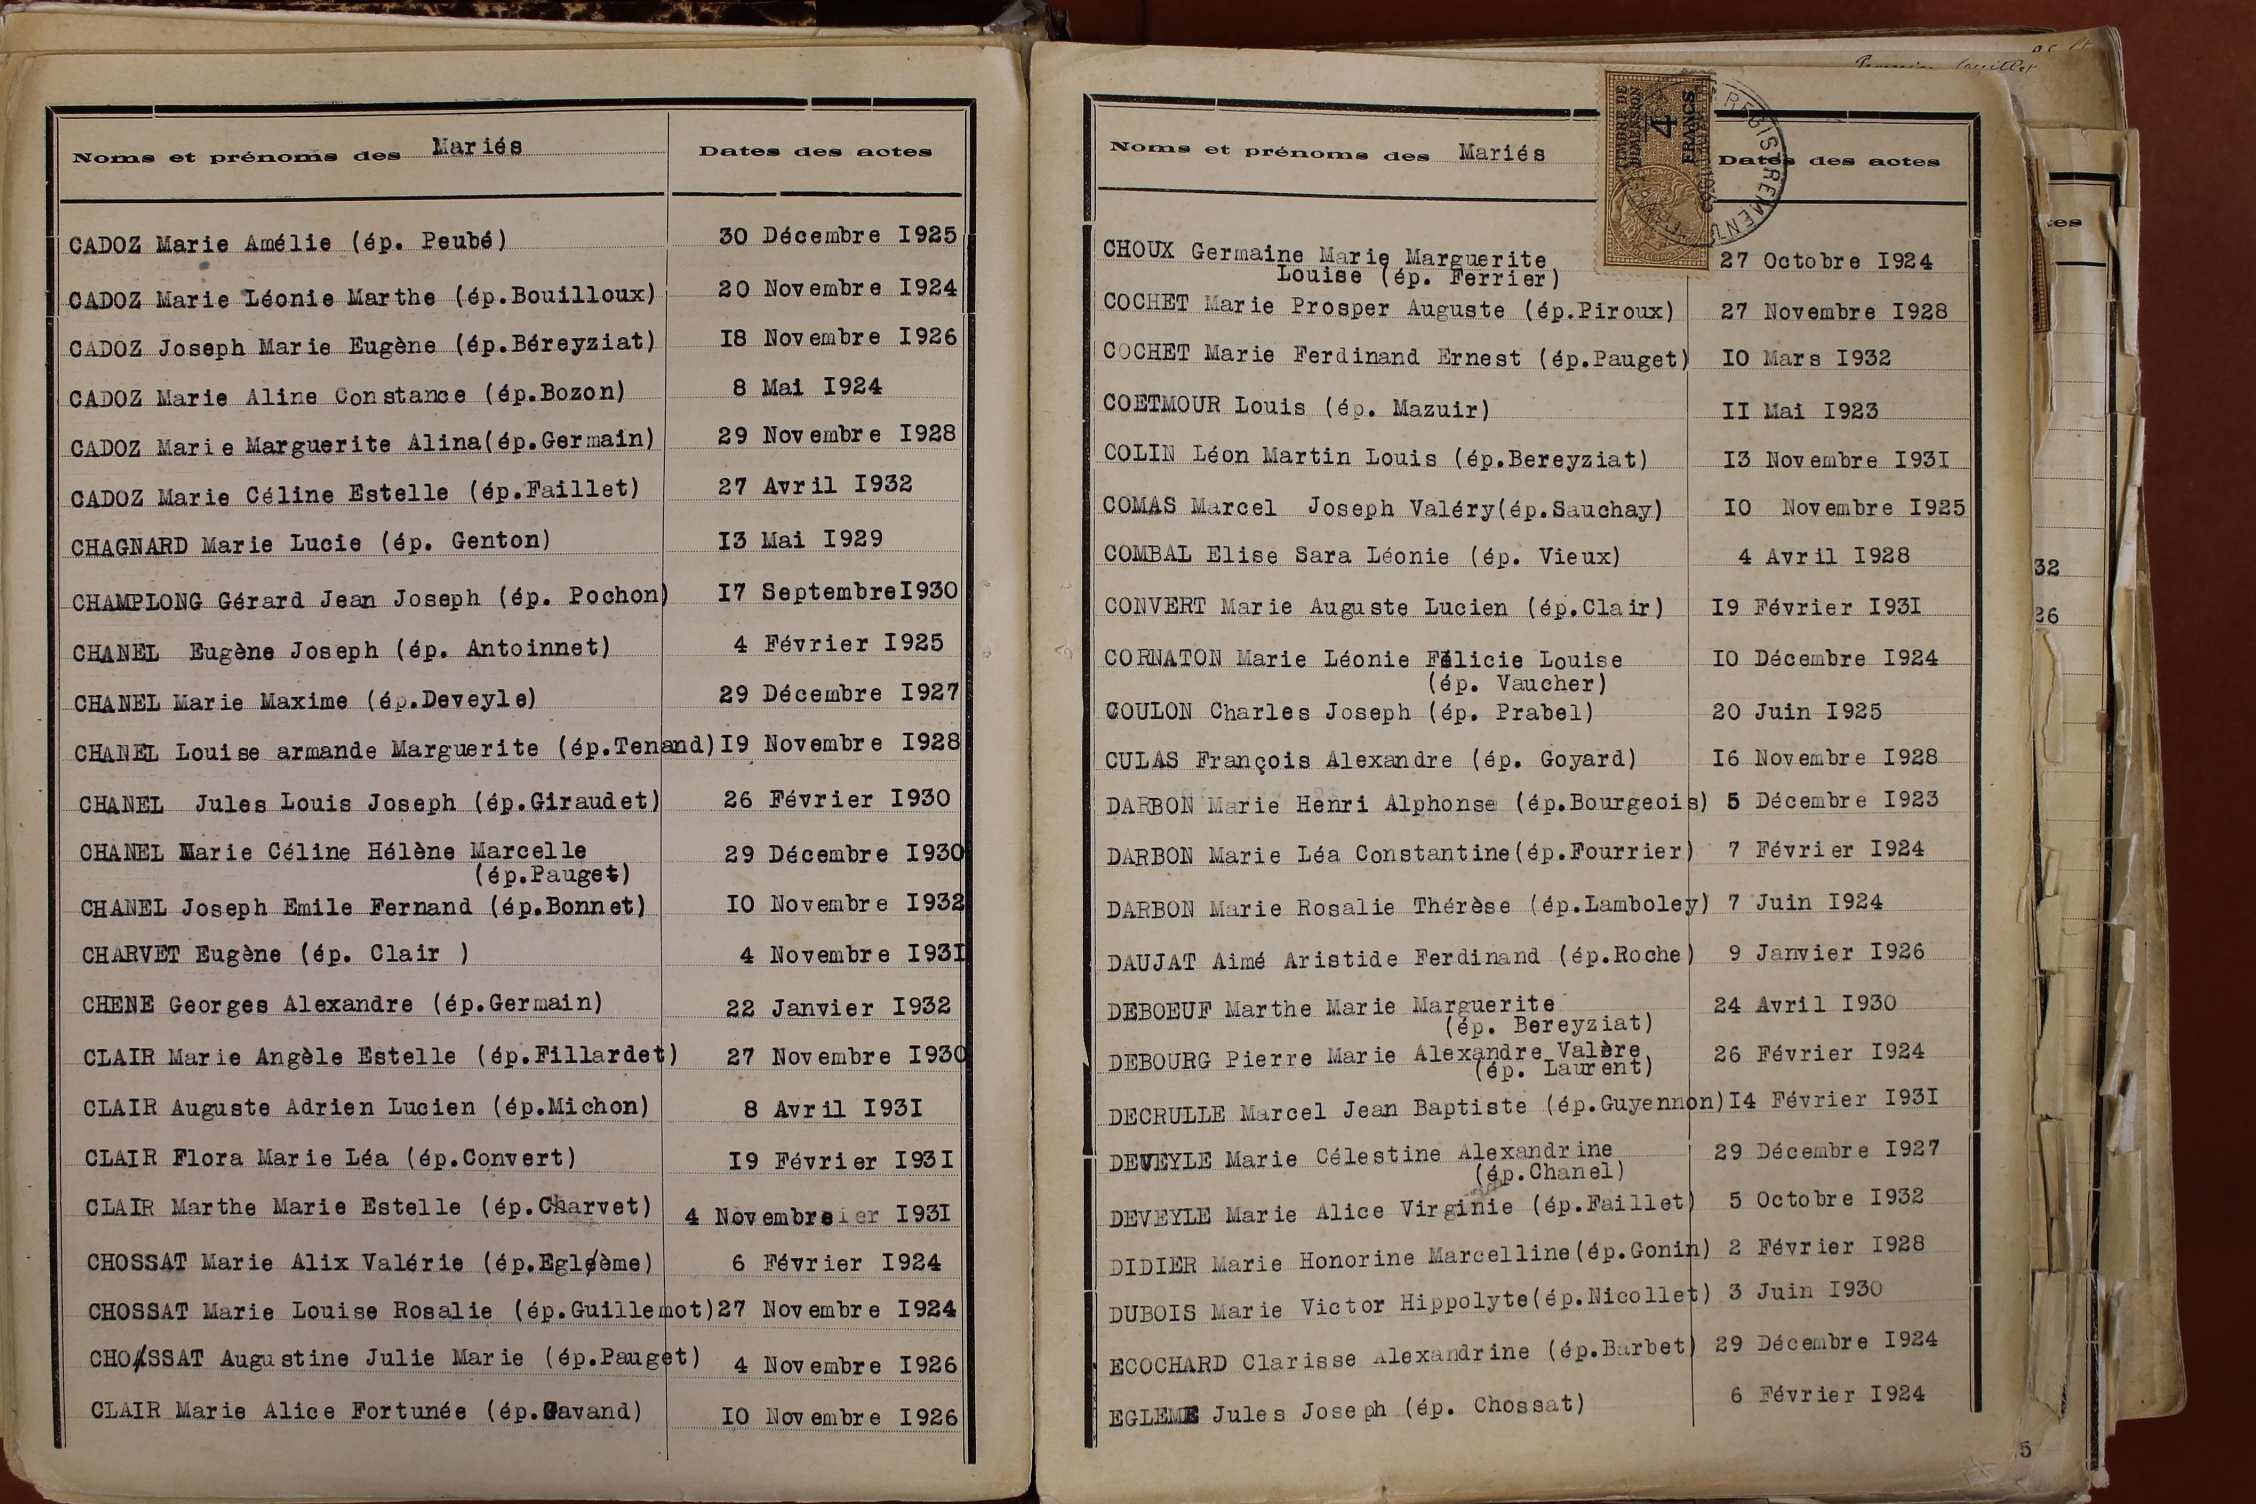 Noms et prénoms des Mariés
Dates des actes
CADOZ Marie Amélie (ép. Peubé) 30 Décembre I925
CADOZ Marie Léonie Marthe (ép.Bouilloux) 20 Novembre I924
CADOZ Joseph Marie Eugène (ép.Béreyziat) I8 Novembre I926
CADOZ Marie Aline Constance (ép.Bozon) 8 Mai I924
CADOZ Marie Marguerite Alina(ép.Germain) 29 Novembre I928
CADOZ Marie Céline Estelle (ép.Faillet) 27 Avril I932
CHAGNARD Marie Lucie (ép. Genton) I3 Mai I929
CHAMPLONG Gérard Jean Joseph (ép. Pochon) I7 SeptembreI930
CHANEL Eugène Joseph (ép. Antoinnet) 4 Février I925
CHANEL Marie Maxime (ép.Deveyle) 29 Décembre I927
CHANEL Louise armande Marguerite (ép.Tenand) I9 Novembre I928
CHANEL Jules Louis Joseph (ép.Giraudet) 26 Février I930
CHANEL Marie Céline Hélène Marcelle 29 Décembre I930
(ép.Pauget)
CHANEL Joseph Emile Fernand (ép.Bonnet) I0 Novembre I932
CHARVET Eugène (ép. Clair ) 4 Novembre I93I
CHENE Georges Alexandre (ép.Germain) 22 Janvier I932
CLAIR Marie Angèle Estelle (ép.Fillardet) 27 Novembre I930
CLAIR Auguste Adrien Lucien (ép.Michon) 8 Avril I93I
CLAIR Flora Marie Léa (ép.Convert) I9 Février I93I
CLAIR Marthe Marie Estelle (ép.Charvet) 4 Novembreier I93I
CHOSSAT Marie Alix Valérie (ép.Eglèème) 6 Février I924
CHOSSAT Marie Louise Rosalie (ép.Guillemot) 27 Novembre I924
CHOSSAT Augustine Julie Marie (ép.Pauget) 4 Novembre I926
CLAIR Marie Alice Fortunée (ép.Gavand) I0 Novembre I926
Noms et prénoms des Mariés
Dates des actes
TIMBRE DE
DIMENSION
4
FRANCS
ENREGISTREMENT
CHOUX Germaine Marie Marguerite 27 Octobre I924
Louise (ép. Ferrier)
COCHET Marie Prosper Auguste (ép.Piroux) 27 Novembre I928
COCHET Marie Ferdinand Ernest (ép.Pauget) I0 Mars I932
COETMOUR Louis (ép. Mazuir) II Mai I923
COLIN Léon Martin Louis (ép.Bereyziat) I3 Novembre I93I
COMAS Marcel Joseph Valéry(ép.Sauchay) I0 Novembre I925
COMBAL Elise Sara Léonie (ép. Vieux) 4 Avril I928
CONVERT Marie Auguste Lucien (ép.Clair) I9 Février I93I
CORNATON Marie Léonie Félicie Louise I0 Décembre I924
(ép. Vaucher)
COULON Charles Joseph (ép. Prabel) 20 Juin I925
CULAS François Alexandre (ép. Goyard) I6 Novembre I928
DARBON Marie Henri Alphonse (ép.Bourgeois) 5 Décembre I923
DARBON Marie Léa Constantine(ép.Fourrier) 7 Février I924
DARBON Marie Rosalie Thérèse (ép.Lamboley) 7 Juin I924
DAUJAT Aimé Aristide Ferdinand (ép.Roche) 9 Janvier I926
DEBOEUF Marthe Marie Marguerite 24 Avril I930
(ép. Bereyziat)
DEBOURG Pierre Marie Alexandre Valère 26 Février I924
(ép. Laurent)
DECRULLE Marcel Jean Baptiste (ép.Guyennon) I4 Février I93I
DEVEYLE Marie Célestine Alexandrine 29 Décembre I927
(ép.Chanel)
DEVEYLE Marie Alice Virginie (ép.Faillet) 5 Octobre I932
DIDIER Marie Honorine Marcelline(ép.Gonin) 2 Février I928
DUBOIS Marie Victor Hippolyte(ép.Nicollet) 3 Juin I930
ECOCHARD Clarisse Alexandrine (ép.Barbet) 29 Décembre I924
EGLEME Jules Joseph (ép. Chossat) 6 Février I924
tes
32
26
5